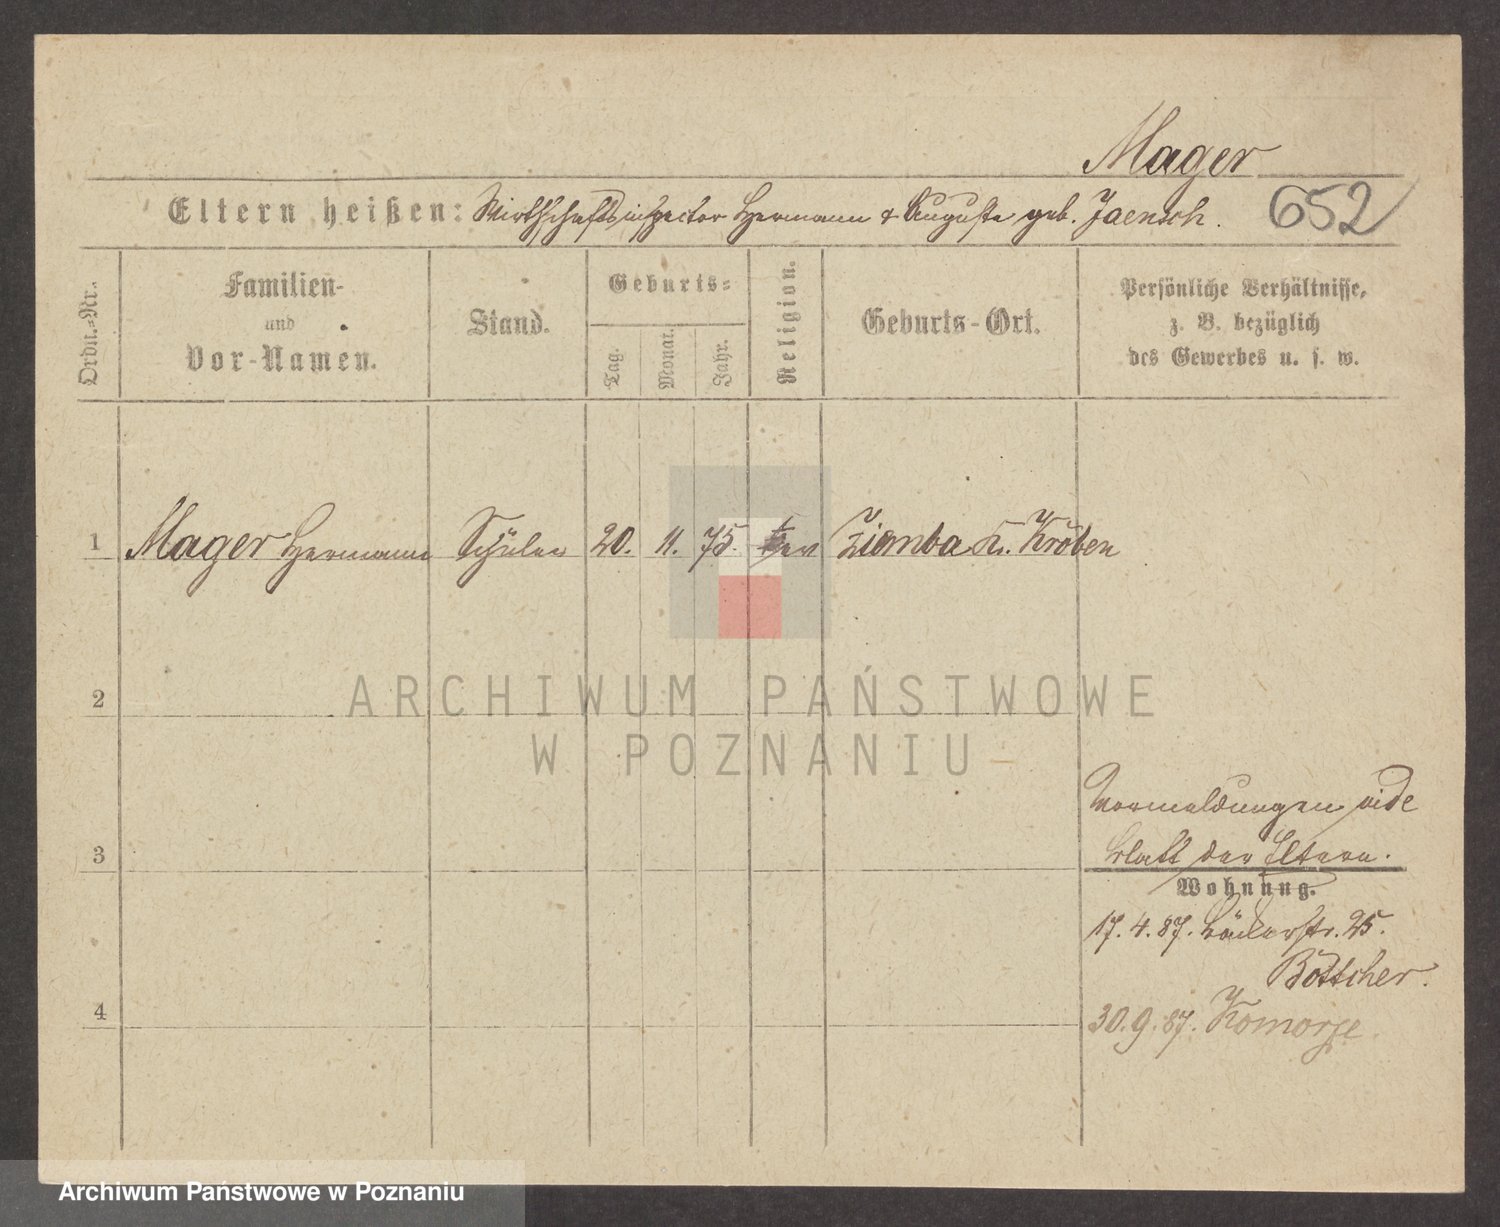 Mager
652
Eltern heißen: Wirthschaftsinspector Hermann & Auguste geb. Jaensch.
Ordn.-Nr.
Familien-
und
Vor-Namen.
Stand.
Geburts-
Tag.
Monat.
Jahr.
Religion.
Geburts-Ort.
Persönliche Verhältnisse,
z. B. bezüglich
des Gewerbes u. s. w.
1 Mager Hermann Schüler 20. 11. 75. ev Ziemba Kr. Kröben
2
3
4
Vormeldungen vide
Blatt der Eltern.
Wohnung.
17. 4. 87. Bäckerstr. 25.
Böttcher.
30. 9. 87.
ARCHIWUM PAŃSTWOWE
W POZNANIU
Archiwum Państwowe w Poznaniu